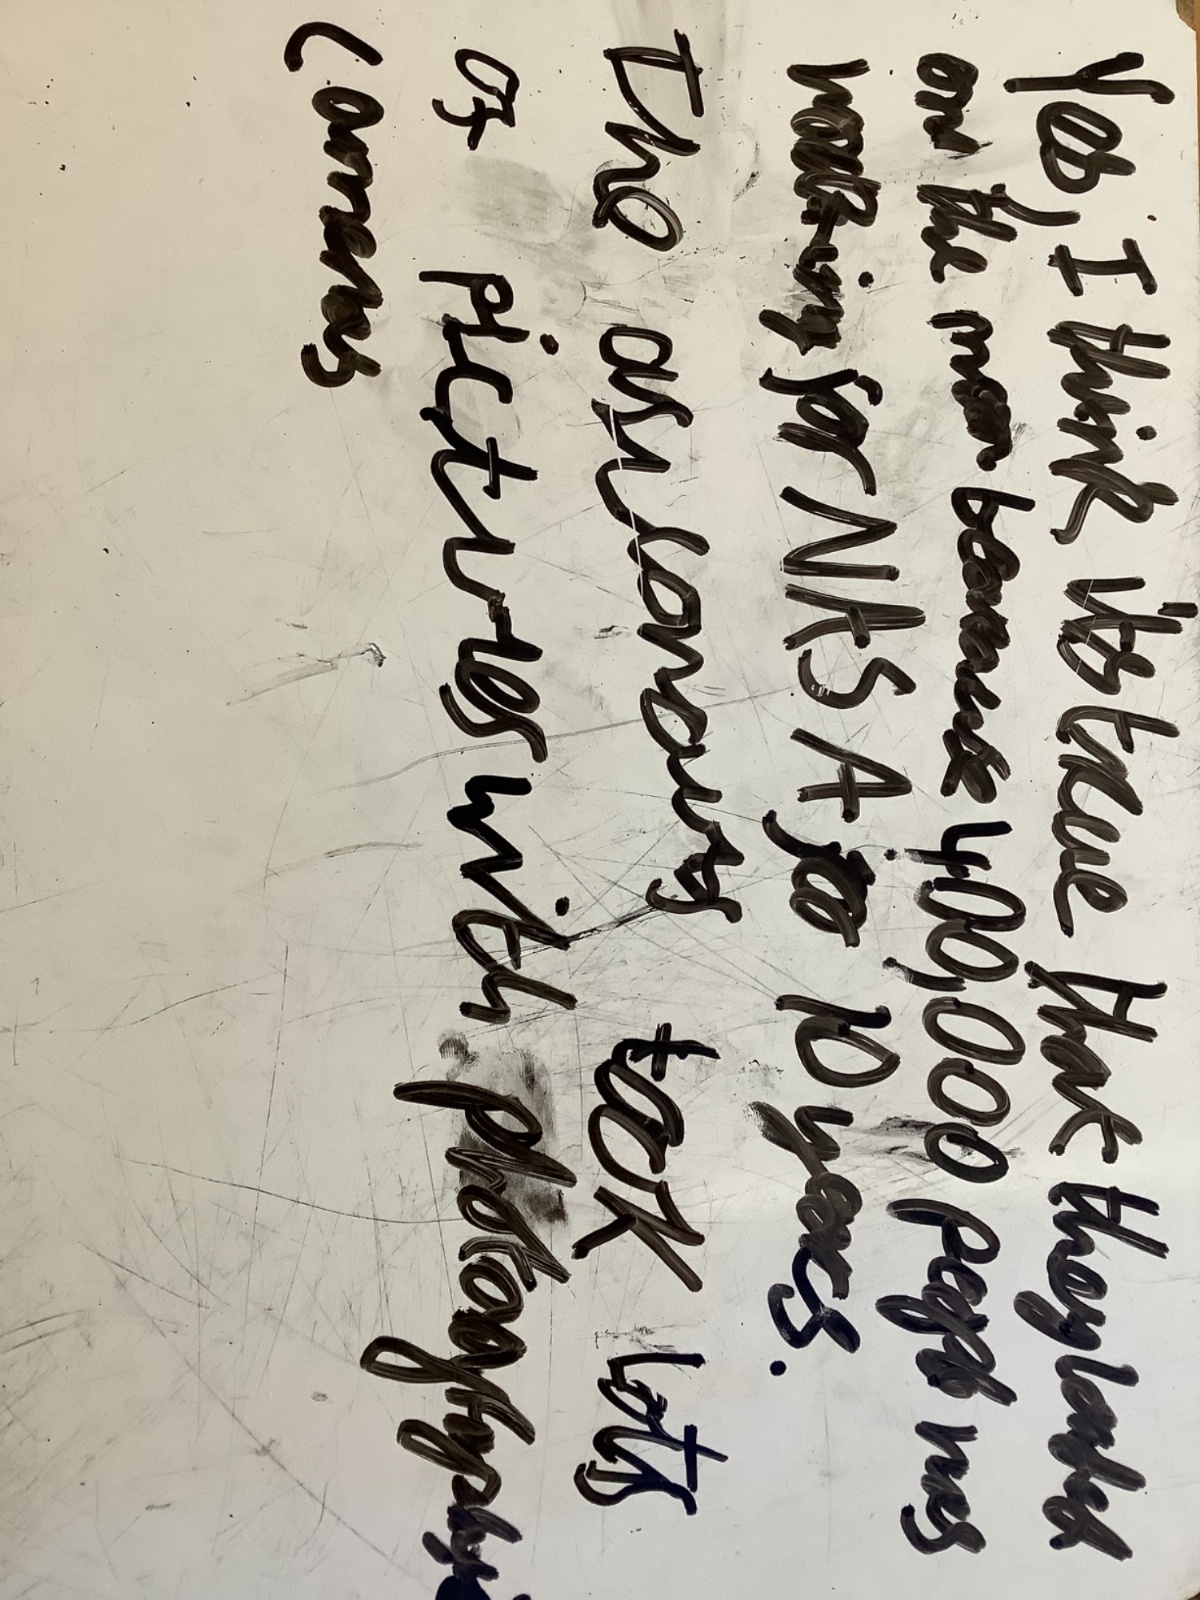 Yes, I think it's true that they landed
on the moon because 400,000 people was
working for NASA for 10 years.
The astronauts took lots
of pictures with photography
Cameras